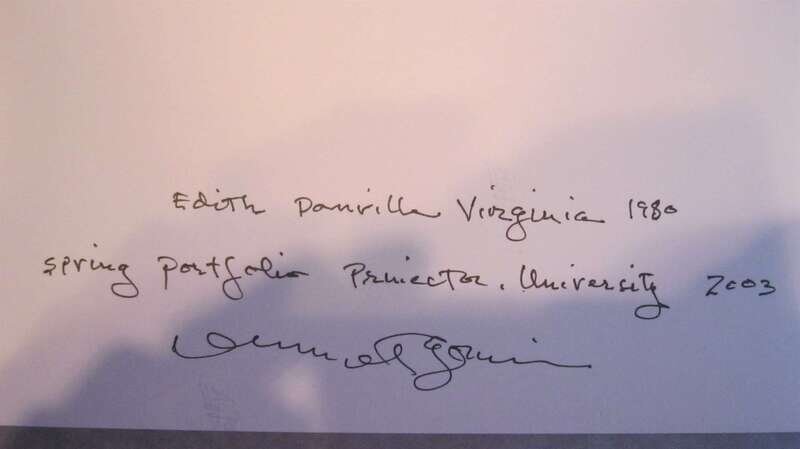 Edith Danville Virginia 1980
spring portfolio Princeton. University 2003
Emmet Gowin